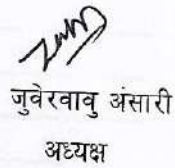 जुवेरवावु अंसारी
अध्यक्ष